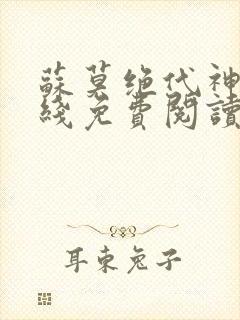 蘇莫绝代神
綫免費閱讀
耳東兔子